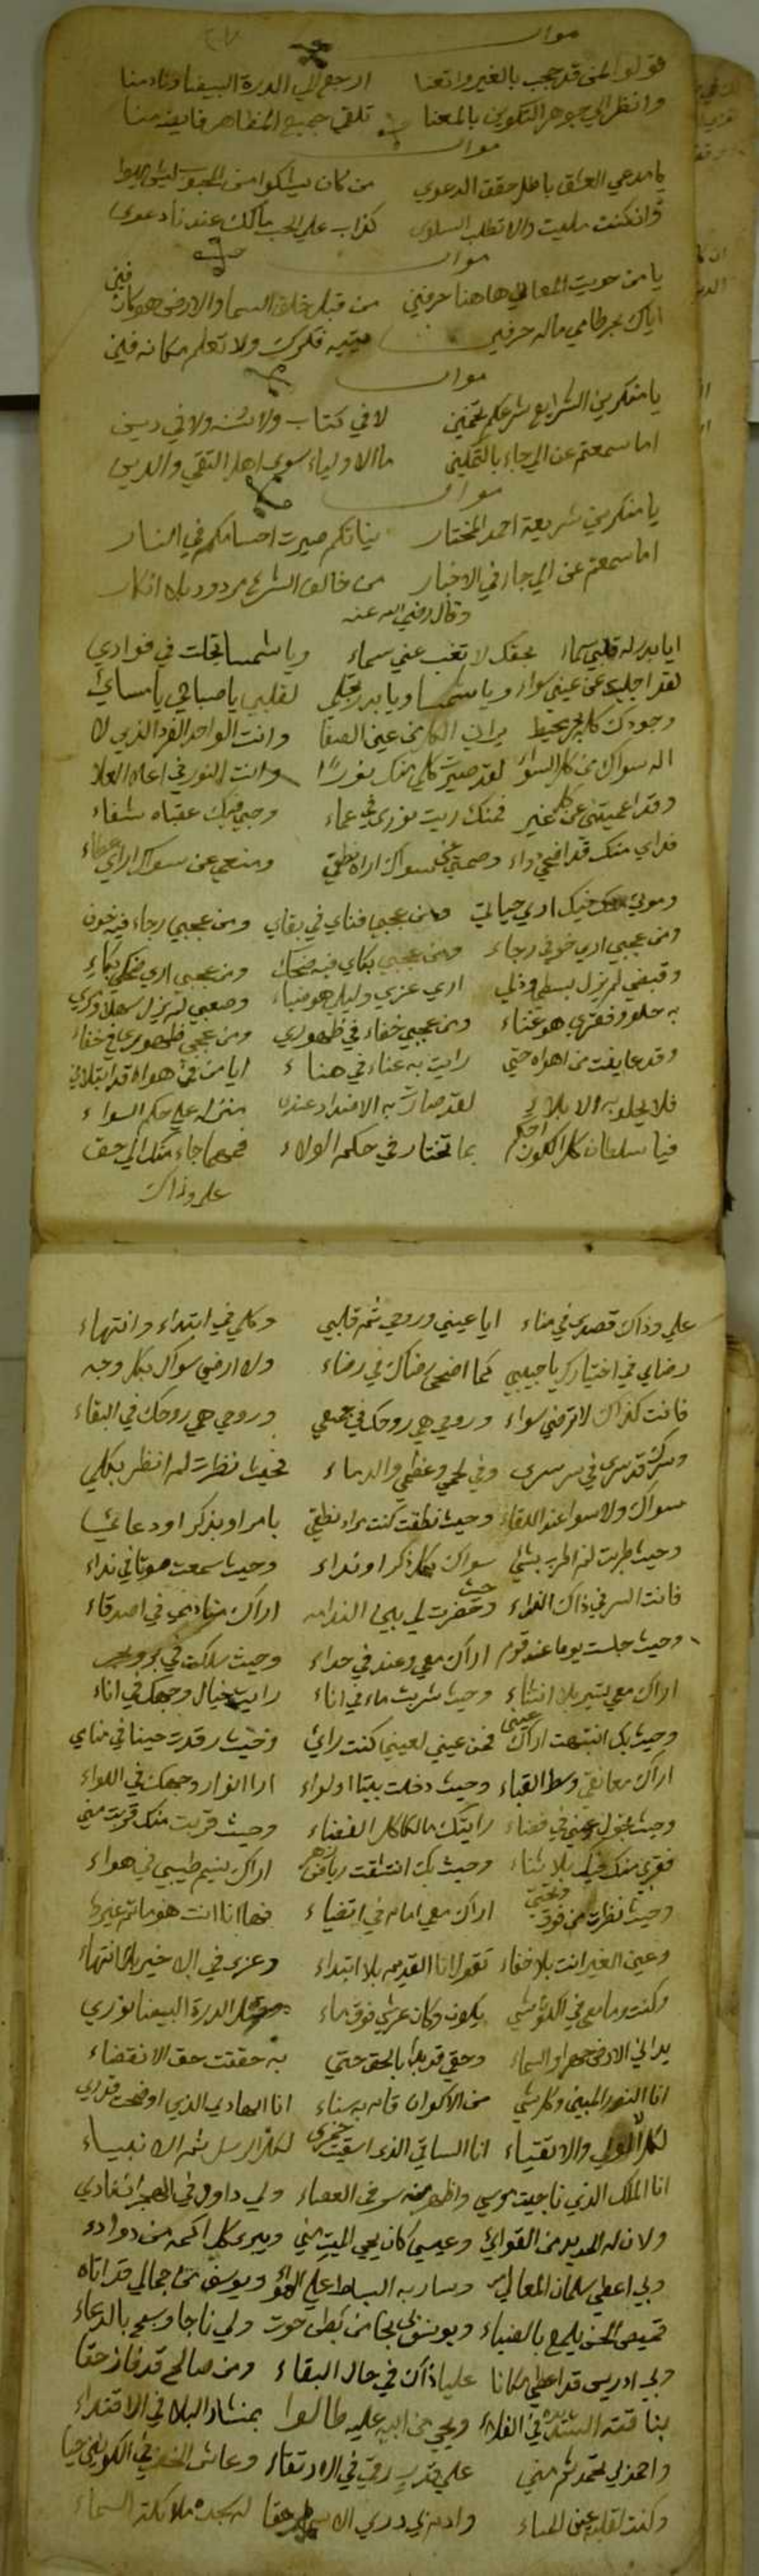 موال
قولوا لمن قد حجب بالغير واتعنا ارجع الي الدرة البيضا ونادمنا
وانظر الي جوهر التكوين بالمعنا تلقي جميع المظاهر فايضه منا
موال
يا مدعي العشق باطل حقق الدعوي من كان يشكوا من المحبوب
وانكنت مليت والا تطلب السلوي كذاب علي الحب مالك عندنا دعوي
موال
يا من حويت المعاني هاهنا حرفين من قبل خلق السما والارض هو كان فين
اياك بحر طامي ماله جرفين ميتيه فكرك ولا تعلم مكانه فين
موال
يا منكرين الشرايع شرعكم تخمين لا في كتاب ولا سنه ولا في دين
اما سمعتم عن الي جاء بالتمكين ما الاولياء سوي اهل التقي والدين
موال
يا منكرين شريعة احمد المختار نياتكم صيرت اجسامكم في النار
اما سمعتم عن الي جا في الاخبار من خالف الشرع مردود بلا انكار
وقال رضي الله عنه
ايا بدر له قلبي سماء بحقك لا تغب عني سماء ويا شمسا تجلت في فوادي
لقد اجليت عن عيني سواء ويا شمسا ويا بدر تجلي لقلبي يا صباحي يا مسائي
وجودك كل بحر محيط يراني الكل من عين الصفا وانت الواحد الفرد الذي لا
اله سواك من كل السواء لقد صيرت كلي منك نورًا وانت النور في اعلا العلا
وقد اعميتني عن كل غير فمنك ريت نوري في عماء وحبي فيك عقباه شفاء
فداي منك قد اضحي دواء وصمتي عن سواك اراه نطقي ومنعي عن سواك اراي عطاء
وموتي فيك اري حياتي ومن عجبي فناي في بقاي ومن عجبي رجاء فيه خوف
ومن عجبي اري خوفي رجاء ومن عجبي بكاي فيه ضحك ومن عجبي اري ضحكي بكاء
وقبضي لم يزل بسطي وذلي اري عزي وليلي هو ضياء وصعبي لم يزل سهلا ومري
به حلو وفقري هو غناء ومن عجبي خفاء في ظهوري ومن عجبي ظهوري في خفاء
وقد عايفت من اهواه حتي رايت به عناء في هناء ايا من في هواه قد ابتلاني
فلا يحلو به الا بلائي لقد صارت به الاضداد عندي منزله علي حكم السواء
فيا سلطان كل الكون احكم بما تختار في حكم الولاء فمهما جاء منك الي حق
علي وذاك
علي وذاك قصدي في مناء ايا عيني وروحي ثم قلبي وكلي في ابتداء وانتهاء
رضاي في اختيارك يا حبيبي كما اضحي رضاك في رضاء ولا ارضي سواك بكل وجه
فانت كذاك لا ترضي سواء وروحي هي روحك في جميعي وروحي هي روحك في البقاء
وسرك قد سري في سر سري وفي لحمي وعظمي والدماء فحيث نظرت لم انظر بكلي
سواك ولا سوا عند اللقاء وحيث نطقت كنت مراد نطقي بامر او بذكر او دعائي
وحيث طربت لم اطرب بشي سواك بكل ذكر او نداء وحيث سمعت صوتا في نداء
فانت السر في ذاك النداء وحيث حضرت لي بين الندامه اراك منادمي في اصدقاء
وحيث جلست يوما عند قوم اراك معي وعند في حداء وحيث سلكت في بر وبحر
اراك معي تسير بلا انثناء وحيث شربت ماء في اناء رايت خيال وجهك في اناء
وحيث بك انتبهت اراك عيني فمن عيني لعيني كنت رائي وحيث رقدت حينا في منامي
اراك معانقي وسط القباء وحيث دخلت بيتا او لواء ارا انوار وجهك في اللواء
وحيث نزول عيني في فضاء رايتك مالكا كل الفضاء وحيث قربت منك قربت مني
فقربي منك فيك بلا ثناء وحيث بك انتشقت رياض زهر اراك نسيم طيبي في هواء
وحيث نظرت من فوق وتحتي اراك معي امام في اتضياء فها انا انت هو ما ثم غيرها
وعين الغير انت بلا خفاء تقول انا القديم بلا ابتداء وعزي في الاخير بلا انتهاء
وكنت وما معي في الكون شي يكون وكان عرشي فوق ماء الدرة البيضا نوري
يداني الارض جمرا والسماء وحقي قد بدا بالحق حتي به حققت حق الانقضاء
انا النور المبين وكل شي من الاكوان قام به سناء انا الهادي الذي اوضحت قدري
لكل الولي والاتقياء انا الساقي الذي اسقيت خمري لكل الرسل ثم الانبياء
انا الملك الذي ناجيت موسي واظهر منه سر في العصاء ولي داود في المهجر انشادي
ولان له الحديد من القواي وعيسي كان يحي الميت مني ويبري كل اكمه من دواءه
وبي اعطي سلمان المعالي وسار به البساط علي الهواء ويوسف من جمالي قد اتاه
قميص الحسن يلمع بالضياء ويونس بي نجا من بطن حوت ولي ناجا وسبح بالدعاء
وبي ادريس قد اعطي مكانا عليا ذاك في حال البقاء ومن صالح قد فاز حقا
بناقته في الفلاء ويحي من ابيه عليه طالوا بمنشار البلا في الاقتداء
واحمد لي محمد ثم مني علي قدر رقي في الارتقاء وعاش الخضر في الكونين حيا
وكنت لقلبه عين الحياء وادم بي دري الاسما حقا له سجدت ملائكة السماء